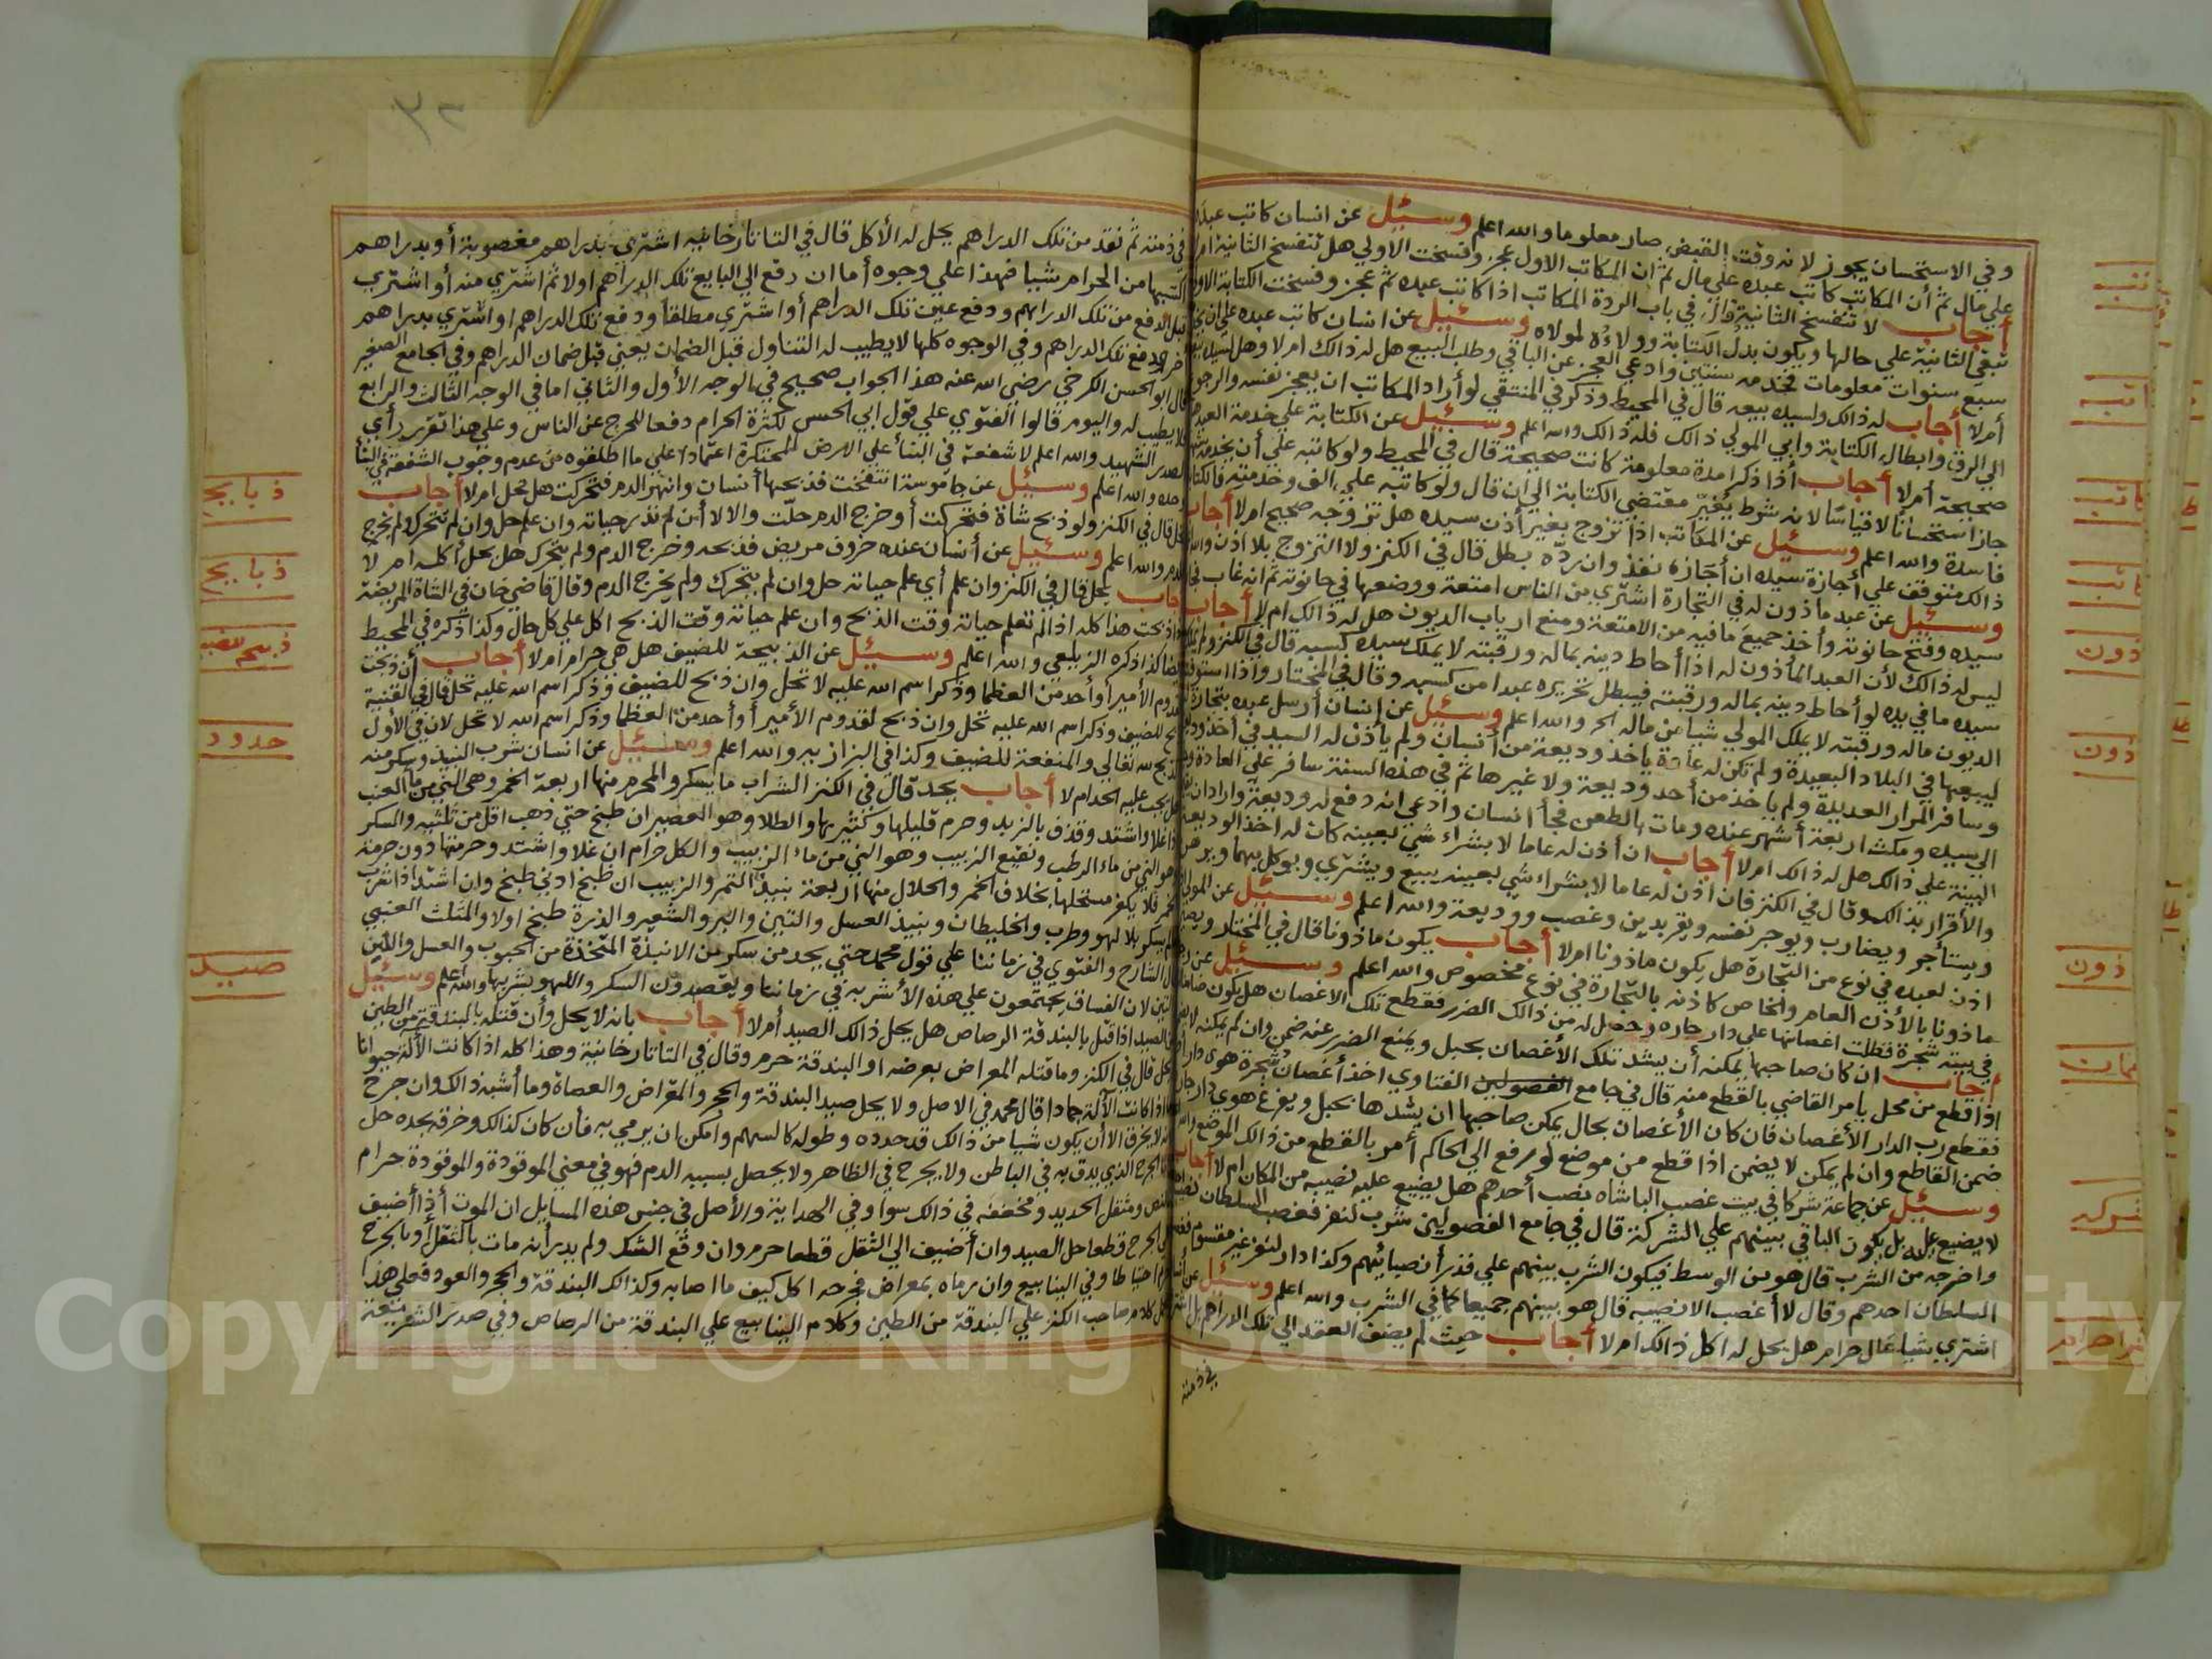 وفي الاستحسان يجوز لانه وقت القبض صار معلوما والله اعلم وسئيل عن انسان كاتب عبده
علي مال ثم أن المكاتب كاتب عبده علي مال ثم ان المكاتب الاول عجز وفسخت الاولي هل تنفسخ الثانية امرلا
أجاب لا تنفسخ الثانية قال في باب الردة المكاتب اذا كاتب عبده ثم عجز وفسخت الكتابة الاولي
تبقي الثانية علي حالها ويكون بدل الكتابة وولاؤه لمولاه وسئيل عن انسان كاتب عبده علي ان
سبع سنوات معلومات فخدمه سنتين وادعي العجز عن الباقي وطلب البيع هل له ذالك امرلا وهل لسيده
أمرلا أجاب له ذالك ولسيده بيعه قال في المحيط وذكر في المنتقي لو أراد المكاتب ان يعجز نفسه والرجوع
الي الرق وابطال الكتابة وابي المولي ذالك فله ذالك والله اعلم وسئيل عن الكتابة علي خدمة العبد
صحيحة أمرلا أجاب أذا ذكرا مدة معلومة كانت صحيحة قال في المحيط ولو كاتبه علي أن يخدمه
جاز استحسانا لا قياسا لانه شوط يغير مقتضي الكتابة الي ان قال ولو كاتبه علي الف وخدمته فالكتابة
فاسدة والله اعلم وسئيل عن المكاتب اذا تزوج بغير أذن سيده هل تزوجه صحيح امرلا أجاب
ذالك متوقف علي أجازة سيده ان أجازه نفذ وان رده بطل قال في الكنز ولا التزوج بلا اذن والله
وسئيل عن عبد ماذون له في التجارة اشتري من الناس امتعة ووضعها في حانوته ثم انه غاب
سيده وفتح حانوته وأخذ جميع ما فيه من الامتعة ومنع ارباب الديون هل له ذالك ام لا أجاب
ليس له ذالك لأن العبد المأذون له اذا أحاط دينه بماله ورقبته لا يملك سيده كسبه قال في الكنز
سيده ما في يده لو أحاط دينه بماله ورقبته فيبطل تحريره عبدا من كسبه وقال في المختار واذا استوفت
الديون ماله ورقبته لا يملك المولي شيا من ماله الخ والله اعلم وسئيل عن إنسان أرسل عبده بتجارة
ليبيعها في البلاد البعيدة ولم تكن له عادة ياخذ وديعة من أنسان ولم يأذن له السيد في أخذ
وسافر المرار العديدة ولم ياخذ من أحد وديعة ولا غيرها ثم في هذه السنة سافر علي العادة
الي سيده ومكث اربعة أشهر عنده ومات بالطعن فجأ انسان وادعي انه دفع له وديعة واراد
البينة علي ذالك هل له ذالك امرلا أجاب ان أذن له عاما لا بشراء شي بعينه كان له اخذ الوديعة
والأقرار بذالك وقال في الكنز فان اذن له عاما لا بشراء شي بعينه يبيع ويشتري ويوكل بهما ويرهن
ويستأجر ويضارب ويوجر نفسه ويقر بدين وغصب ووديعة والله اعلم وسئيل عن المولي
اذن لعبده في نوع من التجارة هل يكون ماذونا امرلا أجاب يكون ماذونا قال في المختار
ماذونا بالأذن العام والخاص كاذنه بالتجارة في نوع مخصوص والله اعلم وسئيل عن
في بيته شجرة فظلت اغصانها علي دار جاره وحصل له من ذالك الضرر فقطع تلك الاغصان هل يكون ضامنا
أجاب ان كان صاحبها يمكنه أن يشد تلك الأغصان بحبل ويمنع الضرر عنه ضمن وان لم يمكنه لا
اذا قطع من محل يامر القاضي بالقطع منه قال في جامع الفتاوي اخذ أغصان شجرة هوي دار
فقطع رب الدار الأغصان فان كان الأغصان بحال يمكن صاحبها ان يشدها بحبل ويفرغ هوي دار جاره
ضمن القاطع وان لم يمكن لا يضمن اذا قطع من موضع لو رفع الي الحاكم أمر بالقطع من ذالك الموضع والله
وسئيل عن جماعة شركا في بيت غصب الباشاه نصب أحدهم هل يضيع عليه نصيبه من المكان ام لا أجاب
لا يضيع عليه بل يكون الباقي بينهم علي الشركة قال في جامع الفصولين شرب لنفر فغصب السلطان
واخرجه من الشرب قال هو من الوسط فيكون الشرب بينهم علي قدر أنصبائهم وكذا دار لنفر غير مقسوم
السلطان احدهم وقال لا أغصب الا نصيبه قال هو بينهم جميعا كما في الشرب والله اعلم وسئيل عن
اشتري شيا بمال حرام هل يحل له اكل ذالك امرلا أجاب حيث لم يضف العقد الي تلك الدراهم بل
في ذمته
ذون
ذون
ذون
شركه
٣٢
في ذمته ثم نقد من تلك الدراهم يحل له الأكل قال في التاتارخانيه اشتري بدراهم مغصوبة أو بدراهم
اكتسبها من الحرام شيا فهذا علي وجوه أما ان دفع الي البايع تلك الدراهم اولا ثم اشتري منه أو اشتري
قبل الدفع من تلك الدراهم ودفع عين تلك الدراهم أو اشتري مطلقا ودفع تلك الدراهم او اشتري بدراهم
ودفع تلك الدراهم وفي الوجوه كلها لا يطيب له التناول قبل الضمان يعني قبل ضمان الدراهم وفي الجامع الصغير
قال ابو الحسن الكرخي رضي الله عنه هذا الجواب صحيح في الوجه الأول والثاني اما في الوجه الثالث والرابع
لا يطيب له واليوم قالوا الفتوي علي قول ابي الحسن لكثرة الحرام دفعا للحرج عن الناس وعلي هذا تقرر رأي
الصدر الشهيد والله اعلم لا شفعة في البنأ علي الارض المحتكرة اعتمادا علي ما اطلقوه من عدم وجوب الشفعة في البنأ
وحده والله اعلم وسئيل عن جاموسة انتفخت فذبحها أنسان وانهر الدم فتحركت هل تحل امرلا أجاب
تحل قال في الكنز ولو ذبح شاة فتحركت أو خرج الدم حلت والا لا أن لم تدر حياته وان علم حل وان لم تتحرك ولم يخرج
الدم والله اعلم وسئيل عن أنسان عنده خروف مريض فذبحه وخرج الدم ولم يتحرك هل يحل أكله امر لا
أجاب يحل قال في الكنز وان علم أي علم حياته حل وان لم يتحرك ولم يخرج الدم وقال قاضي خان في الشاة المريضة
اذا ذبحت هذا كله اذا لم تعلم حياته وقت الذبح وان علم حياته وقت الذبح اكل علي كل حال وكذا ذكره في المحيط
ايضا كذا ذكره الزيلعي والله اعلم وسئيل عن الذبيحة للضيف هل هي حرام امرلا أجاب أن ذبحت
لقدوم الأمير أو أحد من العظما وذكر اسم الله عليه لا تحل وان ذبح للضيف وذكر اسم الله عليه تحل قال في القنية
ذبح للضيف وذكر اسم الله عليه تحل وان ذبح لقدوم الأمير أو أحد من العظما وذكر اسم الله لا تحل لان في الأول
الذبح لله تعالي والمنفعة للضيف وكذا في البزازيه والله اعلم وسئيل عن انسان شرب النبيذ وسكر منه
هل يجب عليه الحد ام لا أجاب يحد قال في الكنز الشراب ما يسكر والمحرم منها اربعة الخمر وهي الني من ما العنب
اذا غلا واشتد وقذف بالزبد وحرم قليلها وكثيرها والطلا وهو العصير ان طبخ حتي ذهب اقل من ثلثيه والسكر
وهو الني من ماء الرطب ونقيع الزبيب وهو الني من ماء الزبيب والكل حرام ان غلا واشتد وحرمتها دون حرمة
الخمر فلا يكفر مستحلها بخلاف الخمر والحلال منها اربعة نبيذ التمر والزبيب ان طبخ ادني طبخ وان اشتد اذا شرب
ما لم يسكر بلا لهو وطرب والخليطان ونبيذ العسل والتين والبر والشعير والذرة طبخ اولا والمثلث العنبي
قال الشارح والفتوي في زماننا علي قول محمد حتي يحد من سكر من الانبذة المتخذة من الحبوب والعسل واللبن
والتين لان الفساق يجتمعون علي هذه الأشربه في زماننا ويقصدون السكر واللهو بشربها والله اعلم وسئيل
عن الصيد اذا قتل بالبندقة الرصاص هل يحل ذالك الصيد أمرلا أجاب بانه لا يحل وأن قتله بالبندقة من الطين
يحل قال في الكنز وما قتله المعراض بعرضه او البندقة حرم وقال في التاتارخانية وهذا كله اذا كانت الألة حيوانا
اما اذا كانت الألة جمادا قال محمد في الاصل ولا يحل صيد البندقة والحجر والمعراض والعصاة وما أشبه ذالك وان جرح
لانه لا يخرق الا أن يكون شيا من ذالك قد حدده وطوله كالسهم وامكن ان يرمي به فأن كان كذالك وخرقه بحده حل
فاما الجرح الذي يدق به في الباطن ولا يجرح في الظاهر ولا يحصل بسببه الدم فهو في معني الموقوذة والموقوذة حرام
ومثقل الحديد ومخففه في ذالك سوا وفي الهداية والأصل في جنس هذه المسايل ان الموت أذا أضيف
الي الجرح قطعا حل الصيد وان أضيف الي الثقل قطعا حرم وان وقع الشك ولم يدر أنه مات بالثقل أو بالجرح
حرم احتياطا وفي الينابيع وان رماه بمعراض فجرحه اكل كيف ما اصابه وكذالك البندقة والحجر والعود فعلي هذا
يحمل كلام صاحب الكنز علي البندقة من الطين وكلام الينابيع علي البندقة من الرصاص وفي صدر الشريعة
ذبايح
ذبايح
ذبح للضيف
حدود
صيد